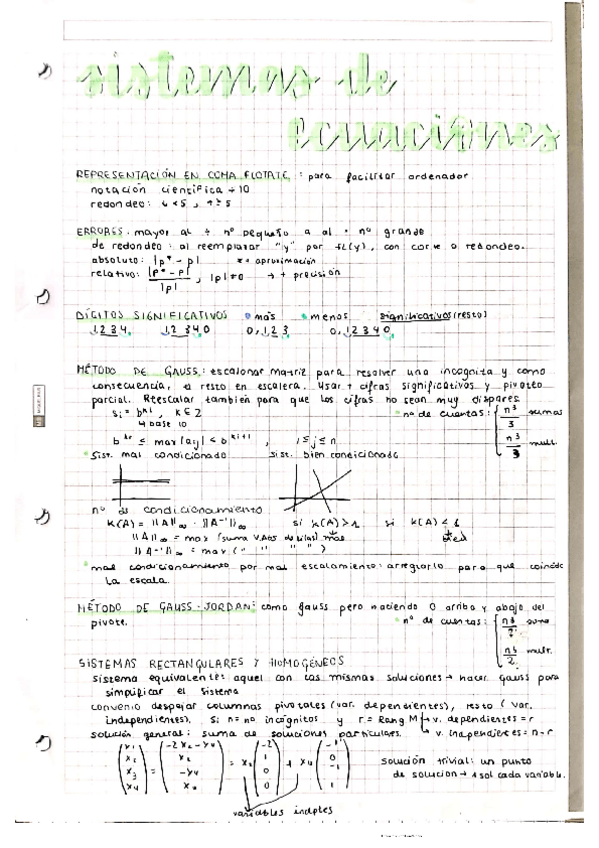 sistemas de
ecuaciones
REPRESENTACIÓN EN COMA FLOTATE: para facilitar ordenador
notación científica ÷ 10
redondeo: 4 < 5, 4 ≥ 5
ERRORES: mayor al ÷ nº pequeño a al · nº grande
de redondeo: al reemplazar "y" por fl(y), con corte o redondeo.
absoluto: |p* - p| *= aproximación
relativo: |p* - p| / |p|, |p| ≠ 0 → + precisión
DÍGITOS SIGNIFICATIVOS más menos significativos (resto)
1234, 12340 0,123 0,12340
MÉTODO DE GAUSS: escalonar matriz para resolver una incognita y como
consecuencia, el resto en escalera. Usar + cifras significativos y pivoteo
parcial. Reescalar también para que los cifras no sean muy dispares
si = b^ki, k ∈ Z nº de cuentas: n³/3 sumas
4 base 10 n³/3 mult.
≤ max |aij| < , 1 ≤ j ≤ n
Sist. mal condicionado sist. bien condicionado
nº de condicionamiento
K(A) = ||A||∞ · ||A⁻¹||∞ si K(A) > 1 si K(A) < 1
||A||∞ = max (suma V.Abs de filas) mal
||A⁻¹||∞ = max (" " " ")
mal condicionamiento por mal escalamiento: arreglarlo para que coincide
la escala.
MÉTODO DE GAUSS-JORDAN: como gauss pero haciendo 0 arriba y abajo del
pivote. nº de cuentas: n³/2 suma
n³/2 mult.
SISTEMAS RECTANGULARES Y HOMOGÉNEOS
sistema equivalente: aquel con las mismas soluciones → hacer Gauss para
simplificar el sistema
convenio despejar columnas pivotales (var. dependientes), resto (var.
independientes). Si n = nº incógnitas y r = Rang M → v. dependientes = r
solución general: suma de soluciones particulares. v. independientes = n - r
(x1 x2 x3 x4) = (-2x2 - x4 x2 -x4 x4) = x2 (-2 1 0 0) + x4 (-1 0 -1 1)
solución trivial: un punto
de solución → 1 sol cada variable.
variables indptes